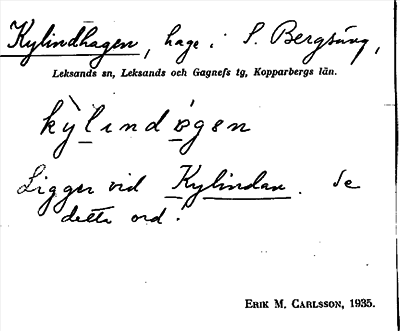 Kylindhagen, hage i S. Bergsäng,
Leksands sn, Leksands och Gagnefs tg, Kopparbergs län.
kỳlindɵgen
Ligger vid Kylindan. Se
detta ord!
ERIK M. CARLSSON, 1935.